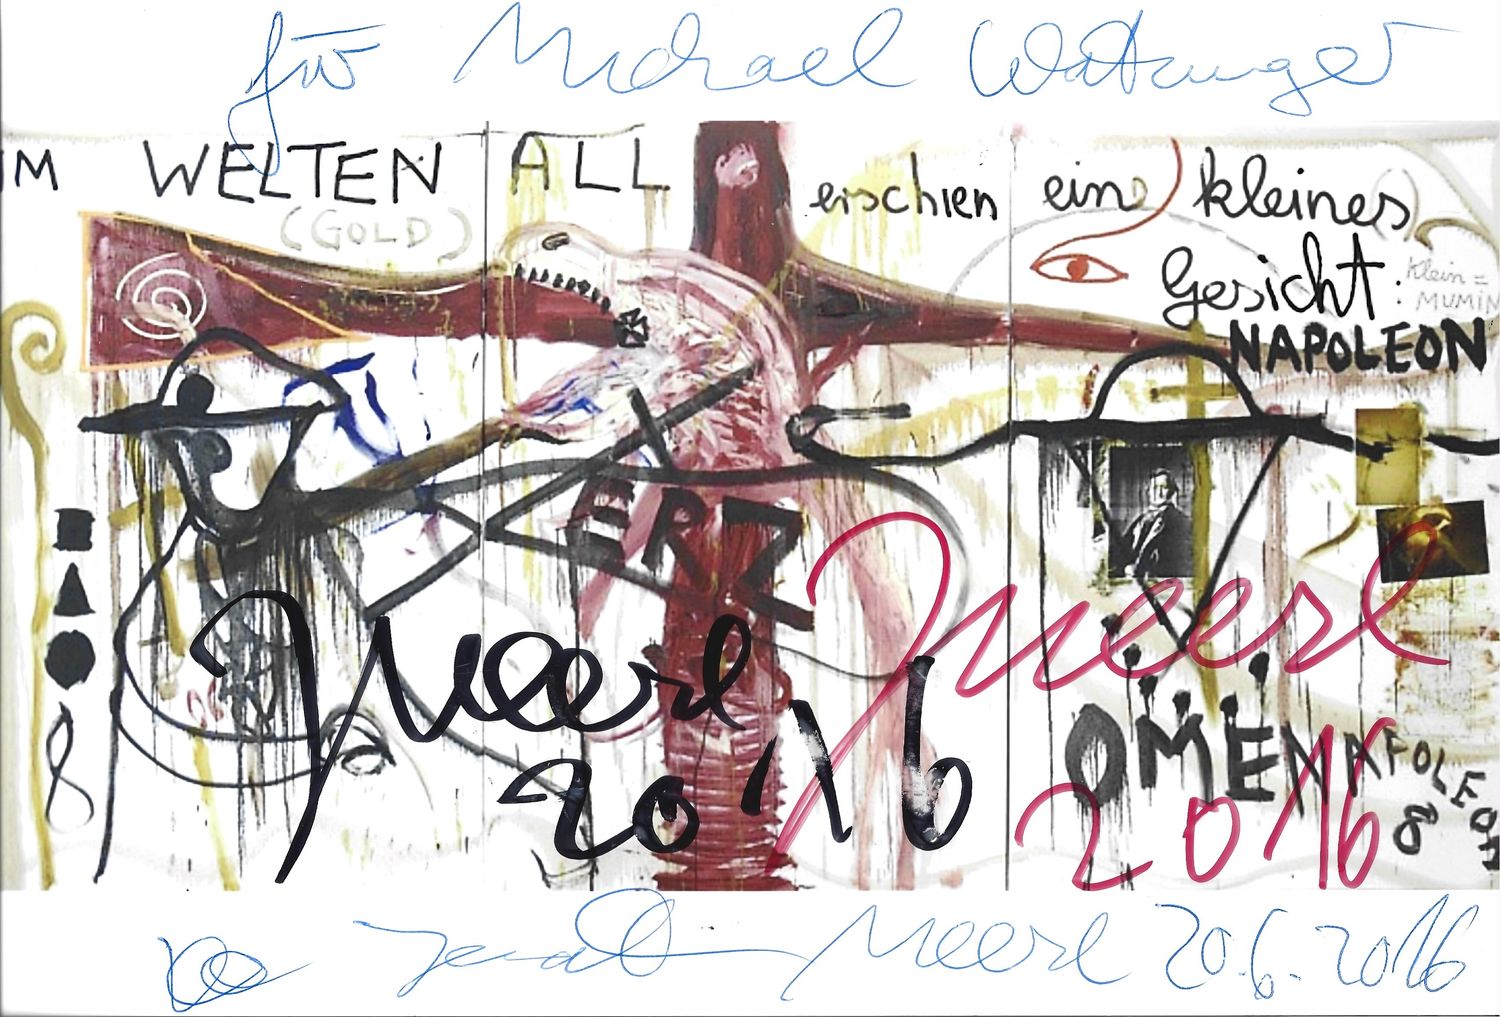 für Michael Watzinger
IM WELTEN ALL erschien ein kleines
(GOLD)
Gesicht:
Klein=
MUMIN
NAPOLEON
ERZ
Meese
2016
Meese
2016
OMEN
NAPOLEON
8
Jonathan Meese 20.6.2016